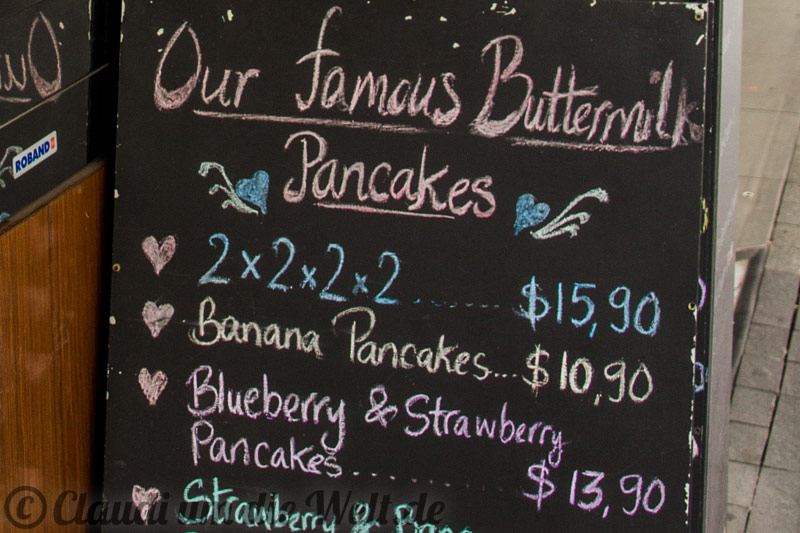 Our famous Buttermilk
Pancakes
2x2x2x2 ........ $15,90
Banana Pancakes... $10,90
Blueberry & Strawberry
Pancakes.......... $13,90
Strawberry &
ROBAND
© Claudi um die Welt.de